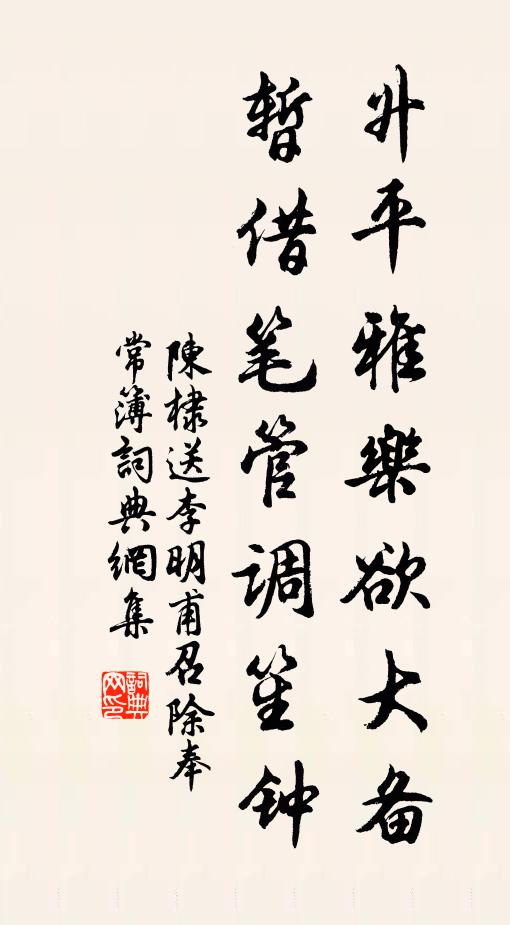 升平雅樂欲大备
暂借笔管调笙钟
陳棣送李明甫召除奉
常簿詞典網集
詞典网印